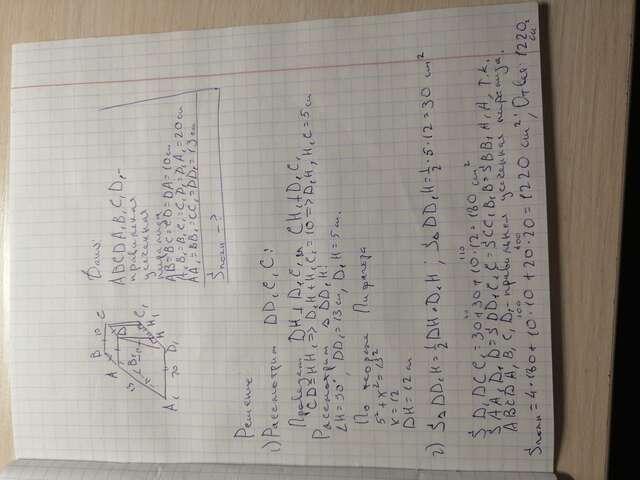 B 10 C
A D
B₁ C₁
13 H H₁
A₁ 20 D₁
Дано:
ABCDA₁B₁C₁D₁ -
правильная
усеченная
пирамида
AB=BC=CD=DA=10см
A₁B₁=B₁C₁=C₁D₁=D₁A₁=20см
AA₁=BB₁=CC₁=DD₁=13см
Sполн - ?
Решение
1) Рассмотрим DD₁C₁C:
Проведем DH⊥D₁C₁ и CH₁⊥D₁C₁
CD=HH₁ => D₁H+H₁C₁=10 => D₁H, H₁C=5см
Рассмотрим △DD₁H:
∠H=90°, DD₁=13см, D₁H=5см.
По теореме Пифагора
5²+x²=13²
x=12
DH=12см
2) S△DD₁H=½DH·D₁H; S△DD₁H=½·5·12=30см²
SD₁DCC₁=30+30+10·12=180см²
SAA₁D₁D=SDD₁C₁C=SCC₁B₁B=SBB₁A₁A, т.к.
ABCDA₁B₁C₁D₁ - правильная усеченная пирамида.
Sполн=4·180+10·10+20·20=1220см²; Ответ: 1220 см²